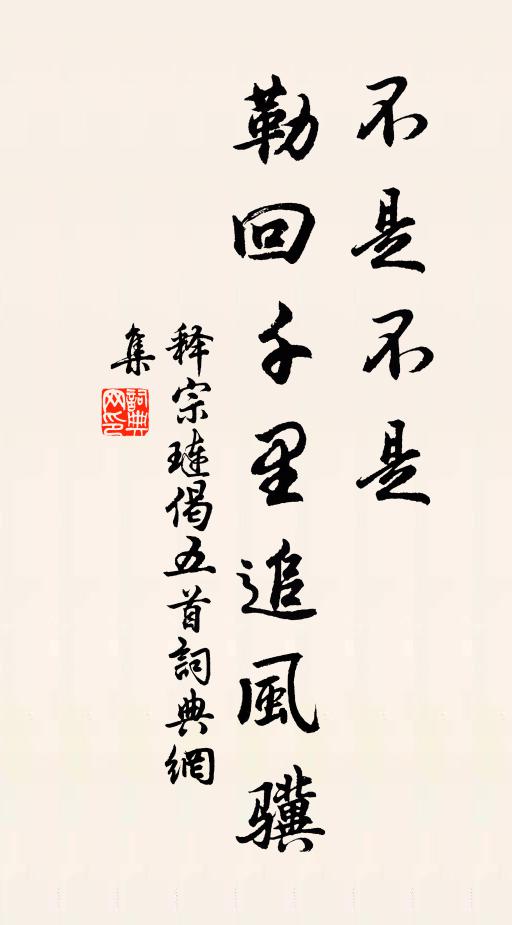 不是不是
勒回千里追風骥
释宗琏偈五首詞典網
集
詞典网印